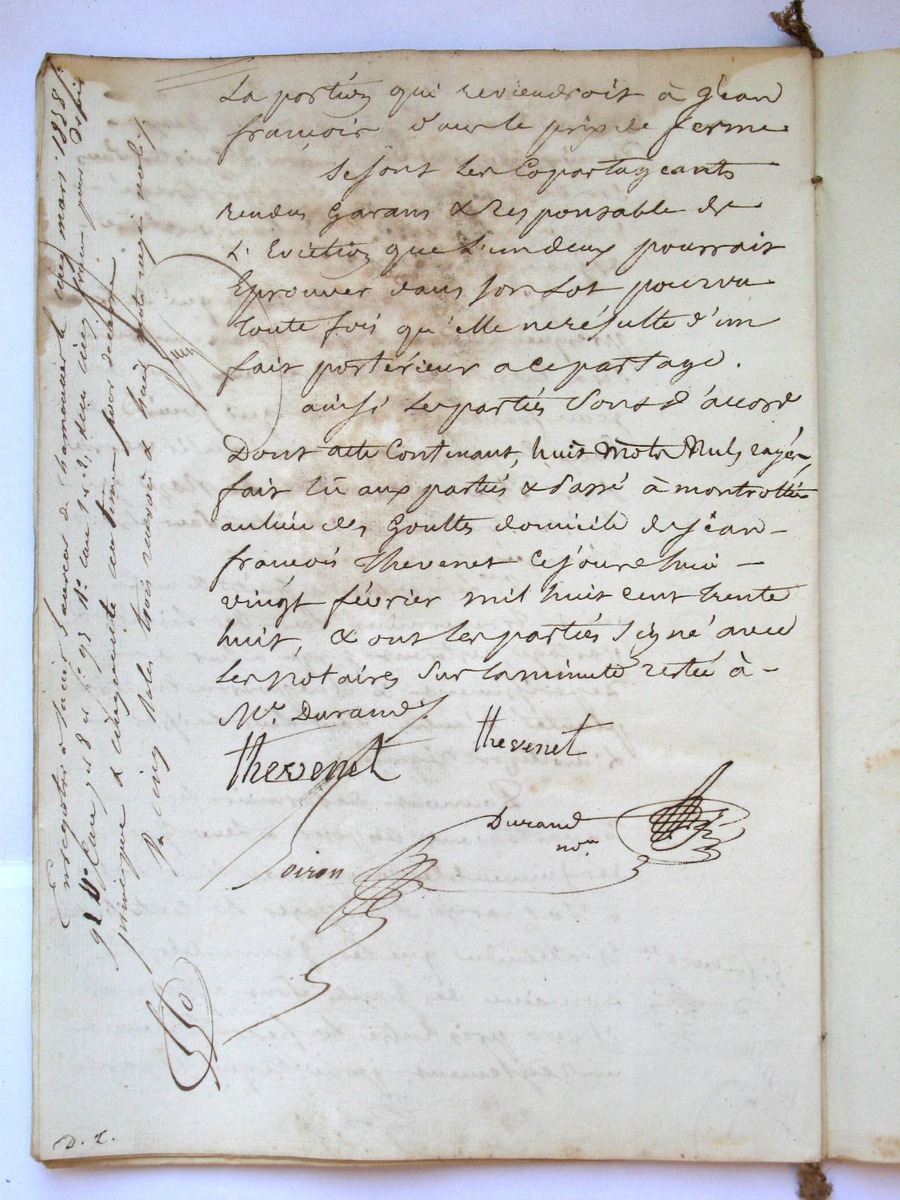 La portion qui reviendroit à Jean
françois dans le prix de ferme
Se sont les Copartageants
rendus Garans & Responsable de
L'Eviction que L'un deux pourrait
Eprouver dans son Lot pourvu
toute fois qu'elle ne résulte d'un
fait postérieur a ce partage.
ainsi les partiés Sont d'accord
Dont acte Contenant, huit Mots Nuls rayés,
fait lû aux partiés & passé à montrottier
au lieu des Gouttes domicile de Jean-
francois Thevenet Ce jourd'hui -
vingt février mil huit cent trente
huit, & ont les partiés Signé avec
Les Notaires Sur la minute restée à -
Me. Durand.
thevenet
thevenet
Durand
nre
Boiron
D. T.
Enregistré à St Laurent de chamousset le cinq mars 1838
principal & cinquante centimes pour décime